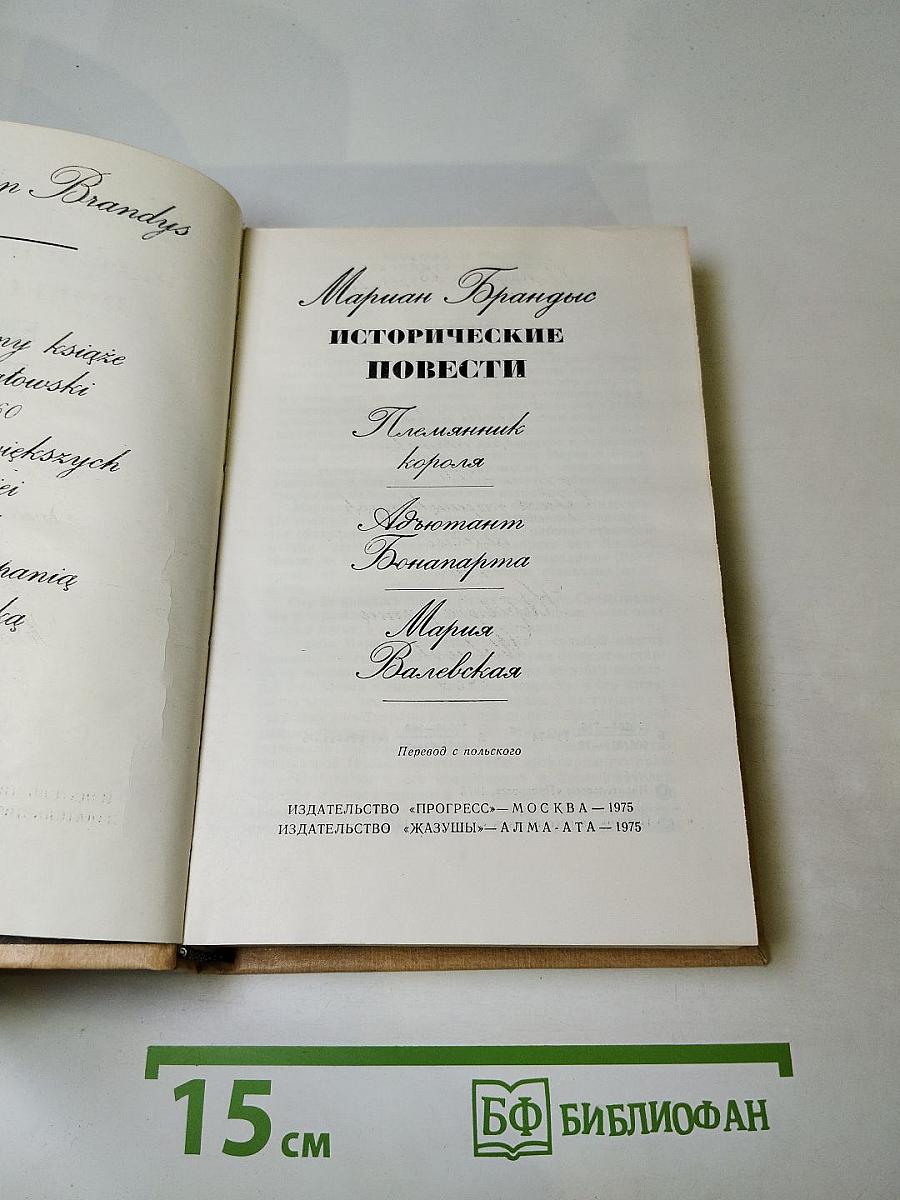 Brandys
książe
1
Мариан Брандыс
ИСТОРИЧЕСКИЕ
ПОВЕСТИ
Племянник
короля
Адъютант
Бонапарта
Мария
Валевская
Перевод с польского
ИЗДАТЕЛЬСТВО «ПРОГРЕСС»—МОСКВА—1975
ИЗДАТЕЛЬСТВО «ЖАЗУШЫ»—АЛМА-АТА—1975
15 см
БФ БИБЛИОФАН